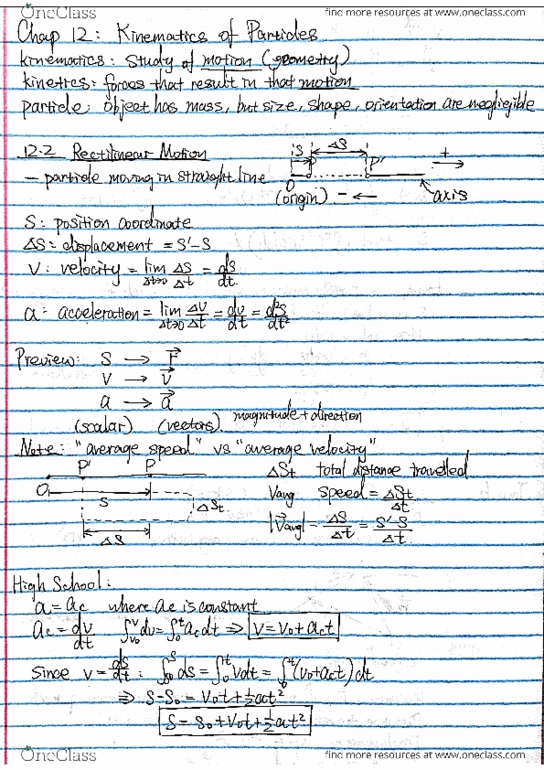 OneClass
find more resources at www.oneclass.com
Chap 12: Kinematics of Particles
kinematics: study of motion (geometry)
kinetics: forces that result in that motion
particle: object has mass, but size, shape, orientation are negligible
12-2 Rectilinear Motion
- particle moving in straight line
S ΔS
P P' +
O
(origin) - ← axis
S: position coordinate
ΔS: displacement = S'-S
V: velocity = lim Δt→0 ΔS/Δt = dS/dt
a: acceleration = lim Δt→0 ΔV/Δt = dv/dt = d²s/dt²
Preview: S → r⃗
V → V⃗
a → a⃗
(scalar) (vectors) magnitude + direction
Note: "average speed" vs "average velocity"
P' P
O
S
ΔSt
ΔS
ΔSt total distance travelled
Vavg speed = ΔSt/Δt
|V⃗avg| = ΔS/Δt = S'-S/Δt
High School:
a = ac where ac is constant
ac = dv/dt ∫v0^v dv = ∫0^t ac dt ⇒ V = V0 + act
Since v = ds/dt : ∫s0^s ds = ∫0^t vdt = ∫0^t (v0+act) dt
⇒ S-S0 = V0t + ½act²
S = S0 + V0t + ½at²
OneClass
find more resources at www.oneclass.com